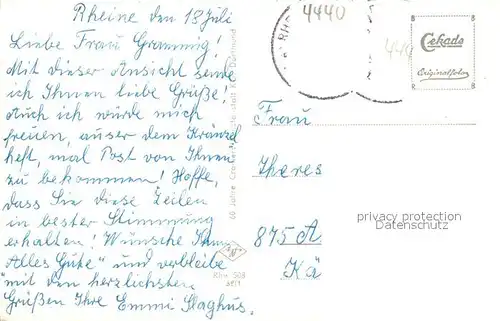 Rheine den 18 Juli
Liebe Frau Grammig!
Mit dieser Ansicht sende
ich Ihnen liebe Grüße!
Auch ich würde mich
freuen, auser dem Kränzel
heft, mal Post von Ihnen
zu bekommen! Hoffe,
dass Sie diese Zeilen
in bester Stimmung
erhalten! Wünsche Ihnen
"Alles Gute" und verbleibe
mit den herzlichsten
Grüßen Ihre Emmi Slaghus.
60 Jahre Cramers Dortmund
Rhn 508
4440
449
RH
Cekade
Originalfoto
Frau
Theres
875 A
Kä
privacy protection
Datenschutz